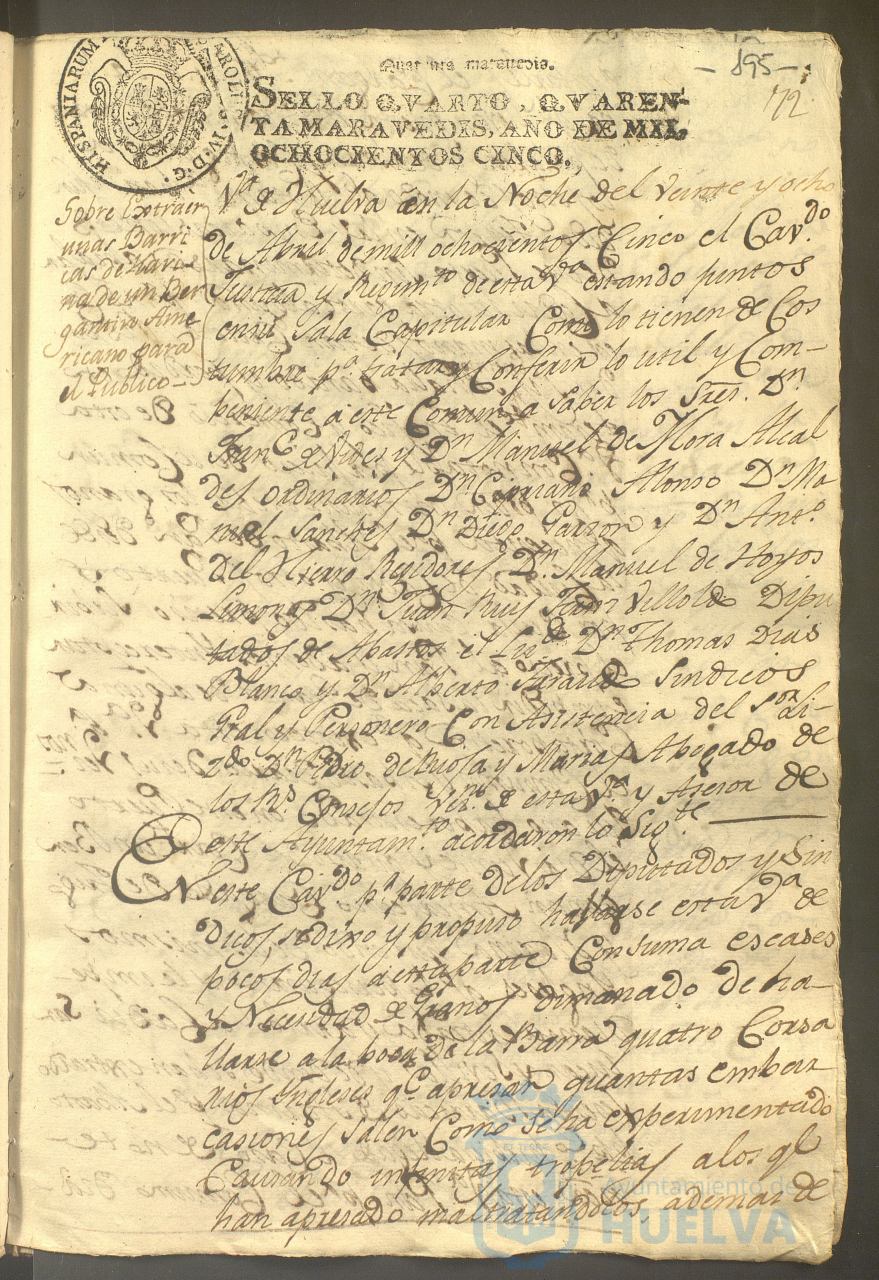 HISPANIARUM
CAROLUS IV D G
Quarenta maravedis.
SELLO QVARTO, QVAREN-
TA MARAVEDIS, AÑO DE MIL
OCHOCIENTOS CINCO.
- 895 -
72
Sobre Extraer
unas Barri
cas de Hari
na de un Ber
gantin Ame
ricano para
el Publico
Vª de Huelva en la Noche del Veinte y ocho
de Abril de mill ochocientos Cinco el Cavdo.
Justicia y Regimto de esta Vª estando juntos
en su Sala Capitular Como lo tienen de Cos
tumbre pª. tratar y Conferir lo util y Com-
beniente á este Comun, a Saber los Sres. Dn
Franco de Vides y Dn Manuel de Mora Alcal
des ordinarios Dn Cipriano Alonso Dn Ma
nuel Sanches Dn Diego Garzon y Dn Anto.
Del Hierro Regidores Dn. Manuel de Hoyos
Limon y Dn Juan Ruiz Dipu
tados de Abastos el Lizdo Dn Thomas Dias
Blanco y Dn Alberto Sindicos
Gral y Personero Con Asistencia del Sor Li-
zdo. Dn Pedro de Riosa y Marias Abogado de
los Rs. Consejos Vezno de esta Vª y Asesor de
este Ayuntamto. acordaron lo Sigte
En este Cavdo pr parte de los Diputados y Sin
dicos, se dixo y propuso hallarse esta Vª de
pocos dias á esta parte Con suma escases
y Necesidad de Granos dimanado de ha-
llarse a la boca de la Barra quatro Corsa
rios Ingleses qe. apresan quantas embar
caciones salen Como se ha experimentado
Causando infinitas tropelias a los qe
han apresado maltratandolos, ademas de
Ayuntamiento de
HUELVA